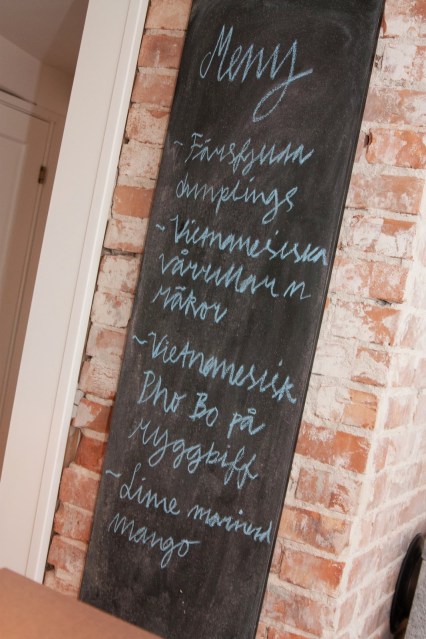 Meny
~ Färsfyllda
dumplings
~ Vietnamesiska
vårrullar m
räkor
~ Vietnamesisk
Pho Bo på
ryggbiff
~ Lime marinerad
mango